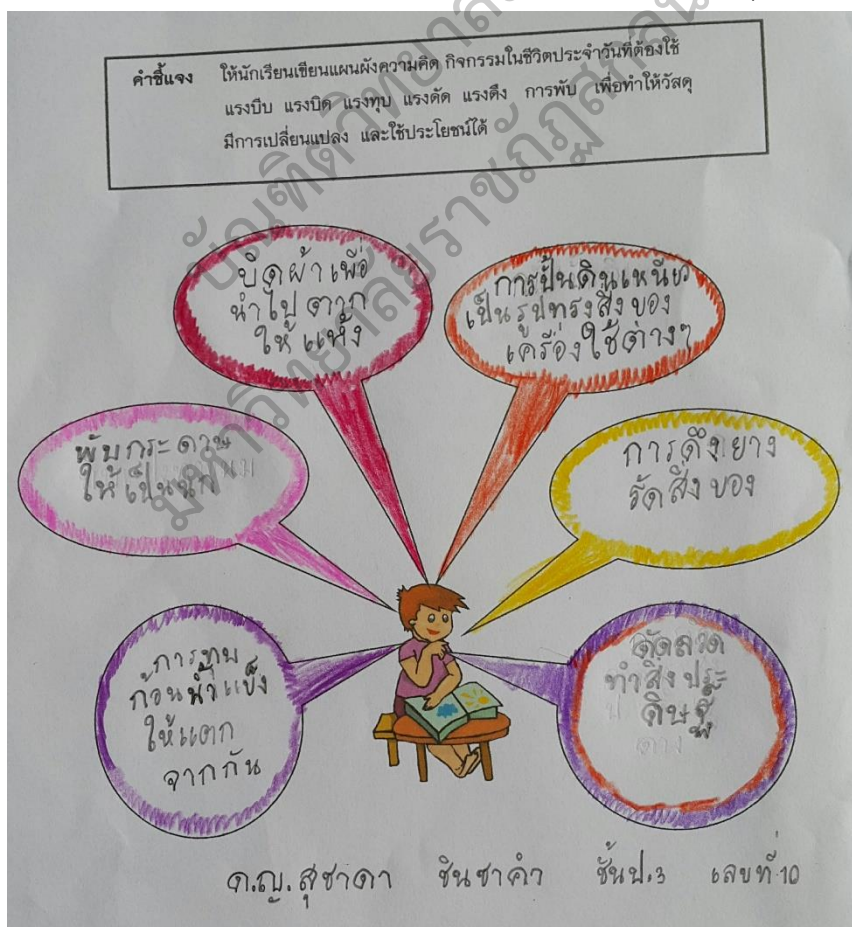 คำชี้แจง ให้นักเรียนเขียนแผนผังความคิด กิจกรรมในชีวิตประจำวันที่ต้องใช้
แรงบีบ แรงบิด แรงทุบ แรงดัด แรงดึง การพับ เพื่อทำให้วัสดุ
มีการเปลี่ยนแปลง และใช้ประโยชน์ได้
บิดผ้าเพื่อ
นำไปตาก
ให้แห้ง
การปั้นดินเหนียว
เป็นรูปทรงสิ่งของ
เครื่องใช้ต่างๆ
พับกระดาษ
ให้เป็นนก
การดึงยาง
รัดสิ่งของ
การทุบ
ก้อนน้ำแข็ง
ให้แตก
จากกัน
ดัดลวด
ทำสิ่งประ
ดิษฐ์
ด.ญ. สุชาดา ชินชาคำ ชั้นป.3 เลขที่ 10